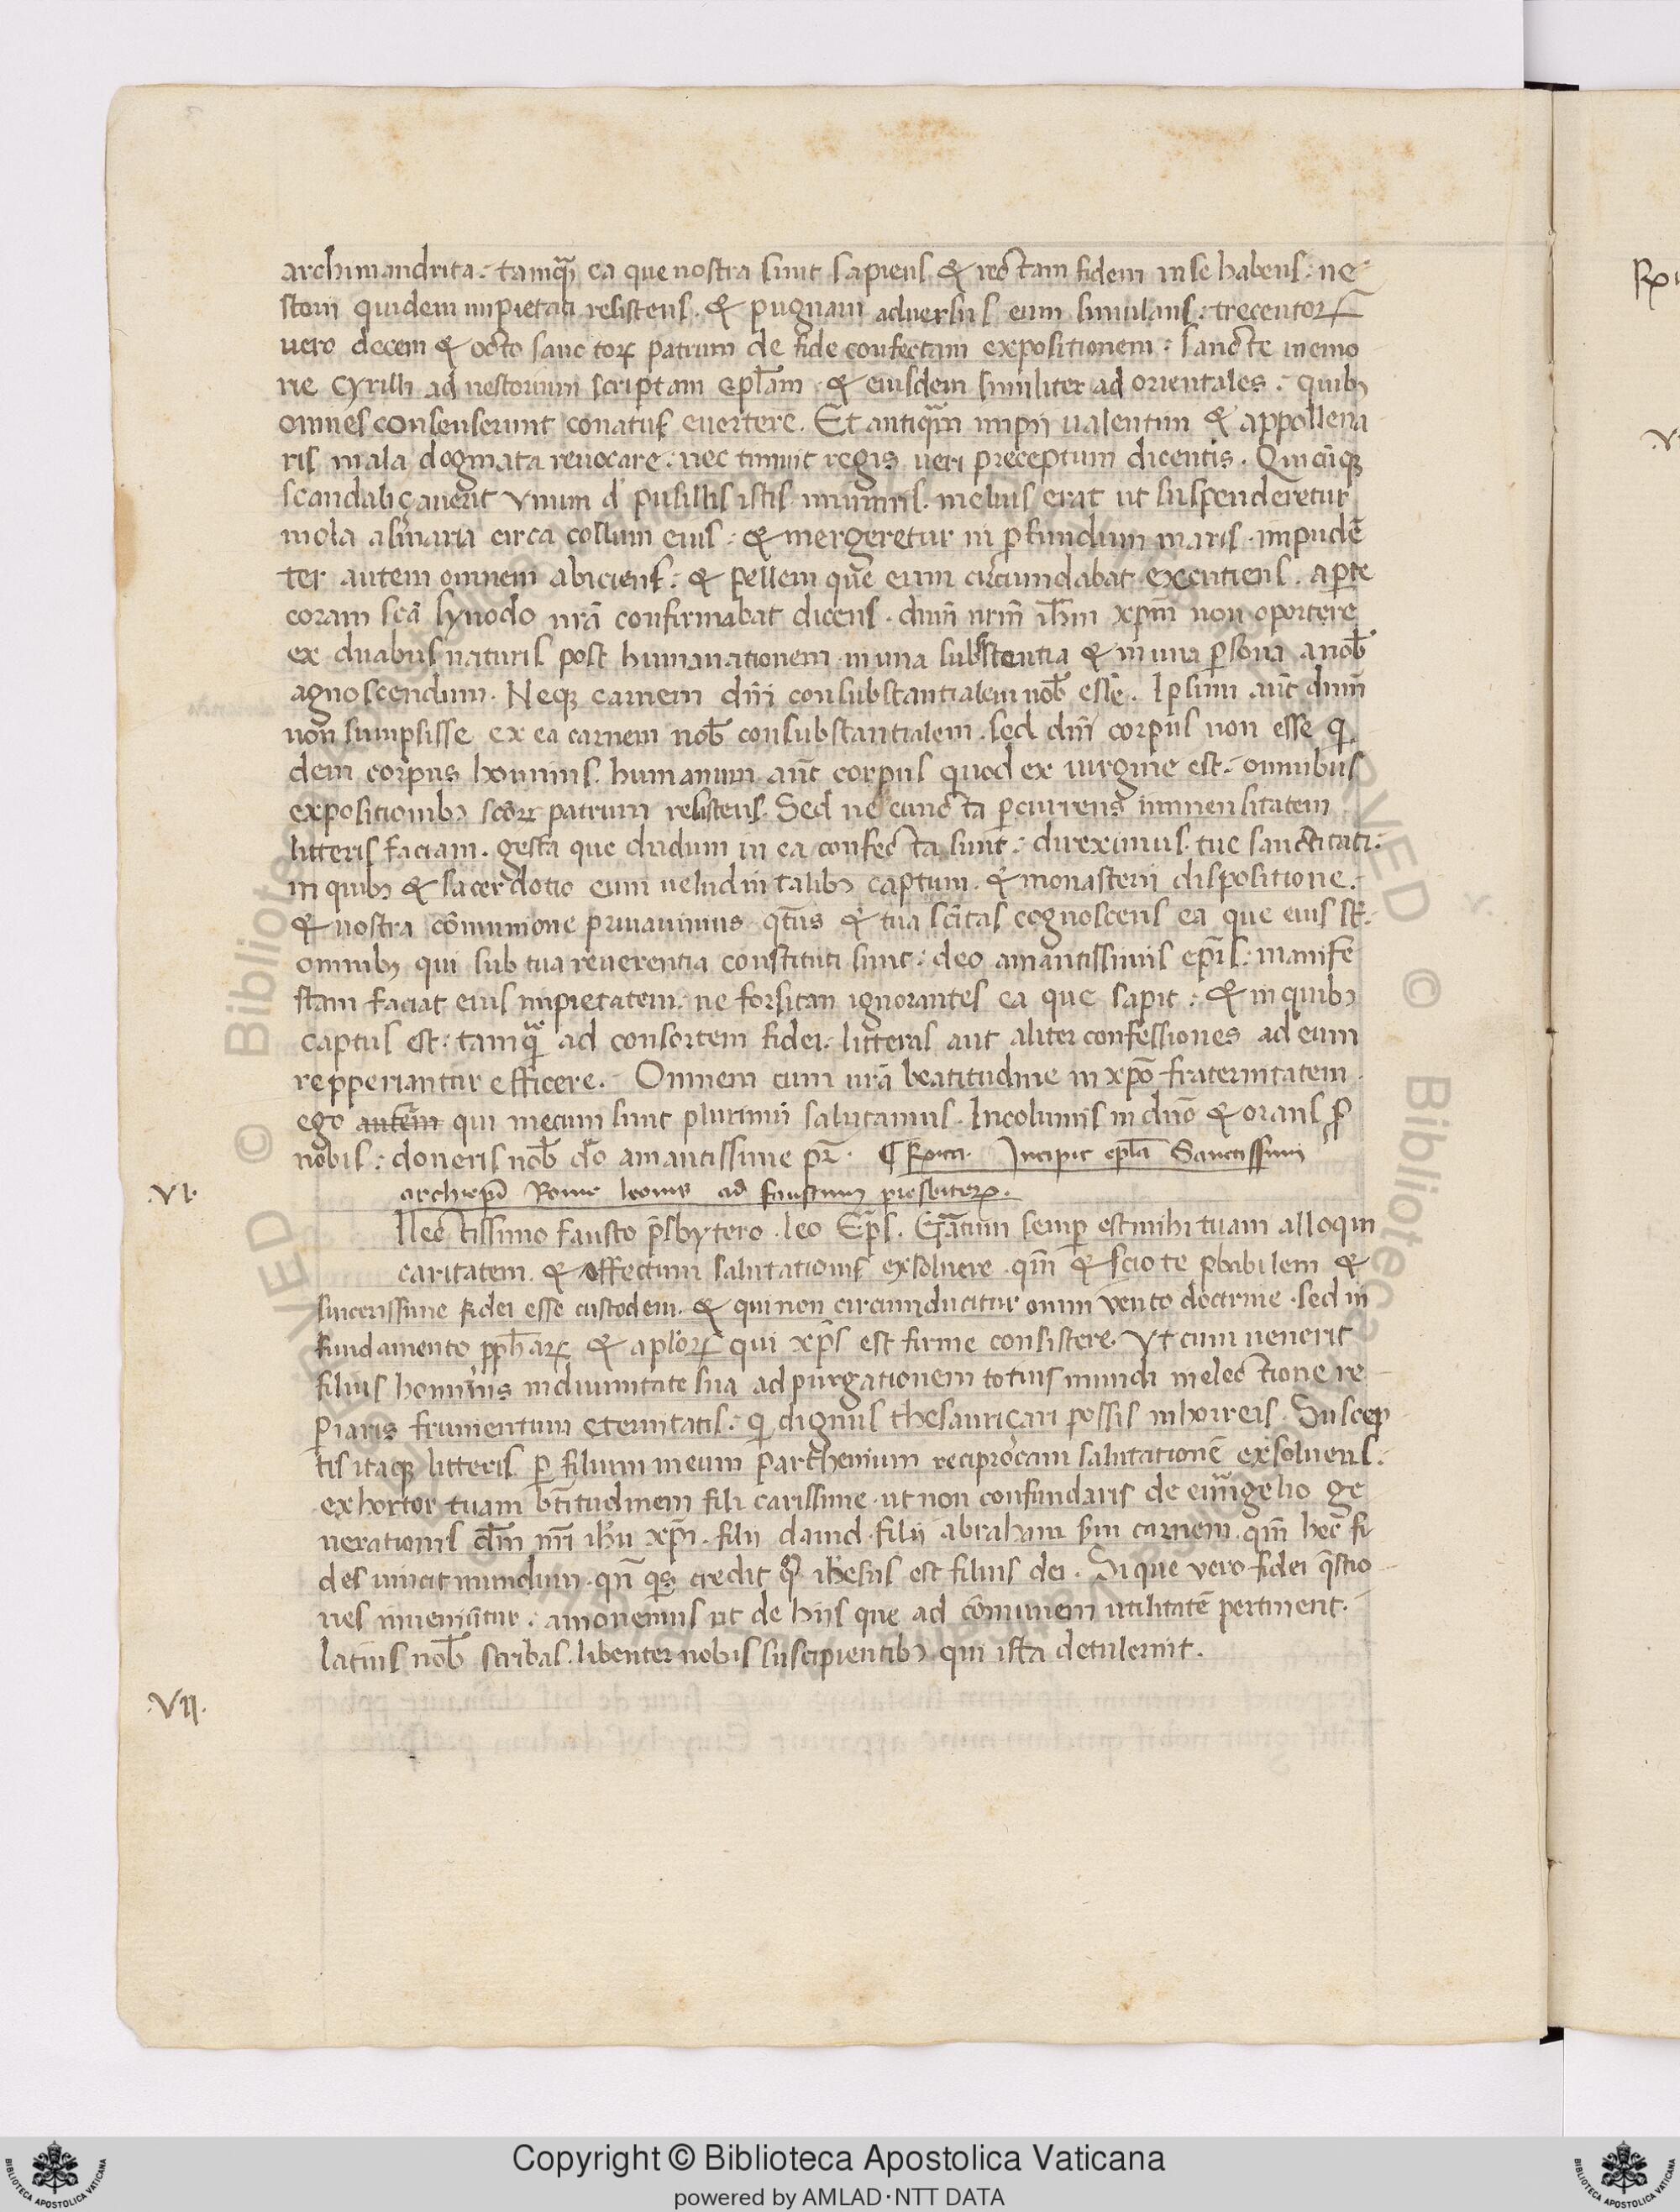 archimandrita. tamq̃ ea que nostra sunt sapiens & rectam fidem in se habens. ne
storii quidem impietati resistens. & pugnam adversus eum simulans. trecentoꝝ
uero decem & octo sanctoꝝ patrum de fide confectam expositionem. sancte memo
rie Cyrilli ad nestorium scriptam epl̃am. & eiusdem similiter ad orientales. quibꝫ
omnes consenserunt conatus evertere. Et antiquam impii ualentini & appollena
ris mala dogmata revocare. nec timuit regis veri preceptum dicentis. Quicũqꝫ
scandaliçaverit vnum d̃ pusillis istis minimis. melius erat ut suspenderetur
mola asinaria circa collum eius. & mergeretur in ꝓfundum maris. impudẽ
ter autem omnem abiciens. & pellem que eum circundabat excutiens. aꝑte
coram scã synodo nrã confirmabat dicens. dnm̃ nrm̃ ihm̃ xpm̃ non oportere
ex duabus naturis post humanationem in una substentia & in una ꝑsona a nob̃
agnoscendum. Neqꝫ carnem dñi consubstantialem nob̃ esse. Ipsum aũt dnm̃
non sumpsisse ex ea carnem nob̃ consubstantialem. sed dñi corpus non esse q
dem corpus hominis. humanum aũt corpus quod ex uirgine est. omnibus
expositionibꝫ scõꝝ patrum resistens. Sed ne cuncta ꝑcurrens immensitatem
litteris faciam. gesta que dudum in ea confecta sunt. direximus tue sanctitati.
in quibꝫ & sacerdotio eum uelud in talibꝫ captum. & monasterii dispositione.
& nostra cõmunione privavimus. qtũs & tua scĩtas cognoscens ea que eius st̃.
omnibꝫ qui sub tua reverentia constituti sunt. deo amantissimis ep̃is. manife
stam faciat eius impietatem. ne forsitan ignorantes ea que sapit. & in quibꝫ
captus est. tamq̃ ad consortem fidei. litteras aut aliter confessiones ad eum
repperiantur efficere. Omnem cum urã beatitudine in xp̃o fraternitatem
ego autem qui mecum sunt plurimũ salutamus. Incolumis in dño & orans ꝓ
nobis. doneris nob̃ dõ amantissime pr̃. ¶ Rx̃ca. Incipit epl̃a Sanctissimi
.VI. archiep̃i Rome leonis ad faustum presbiterꝝ.
llectissimo fausto p̃sbytero. leo Ep̃s. Gr̃atum semꝑ est mihi tuam alloqui
caritatem. & affectum salutationis exsolvere. qm̃ & scio te ꝓbabilem &
sincerissime fidei esse custodem. & qui non circunducitur omni vento doctrine. sed in
fundamento ꝓphetaꝝ & apl̃oꝝ qui xp̃s est firme consistere. Vt cum uenerit
filius hominis in diuinitate sua ad purgationem totius mundi in electione re
periaris frumentum eternitatis. q dignus thesauriçari possis in horreis. Suscep
tis itaqꝫ litteris ꝑ filium meum Parthenium reciprocam salutationẽ exsoluens.
exhortor tuam bt̃itudinem fili carissime. ut non confundaris de euuãgelio ge
nerationis dm̃ nr̃i ihũ xpĩ. filii david. filii abraham sm̃ carnem. qm̃ hec fi
des uincit mundum. qm̃ qs credit q̃ ihesus est filius dei. Si que vero fidei q̃stio
nes inveniũtur. amonemus ut de hiis que ad cõmunem utilitatẽ pertinent.
latius nob̃ scribas. libenter nobis suscipientibꝫ qui ista detulerint.
.VII.